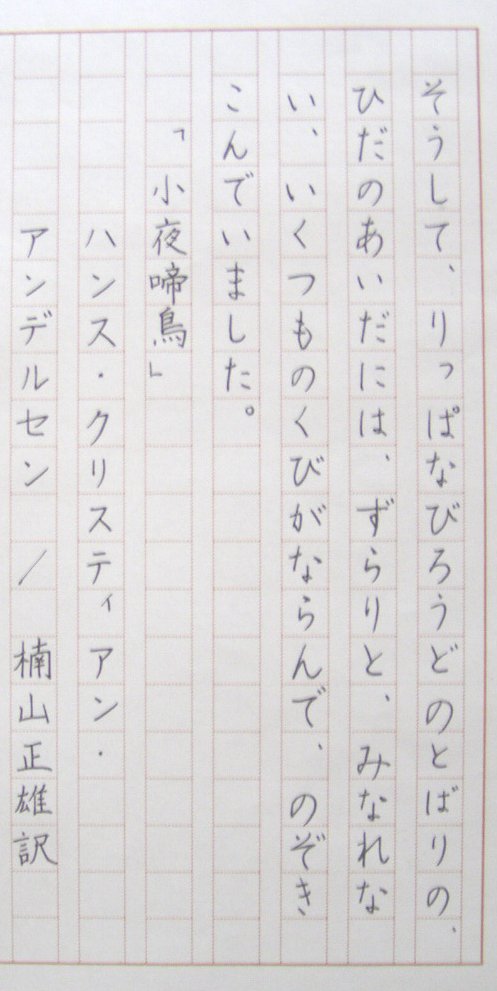 そうして、りっぱなびろうどのとばりの、
ひだのあいだには、ずらりと、みなれな
い、いくつものくびがならんで、のぞき
こんでいました。
「小夜啼鳥」
ハンス・クリスティアン・
アンデルセン / 楠山正雄訳